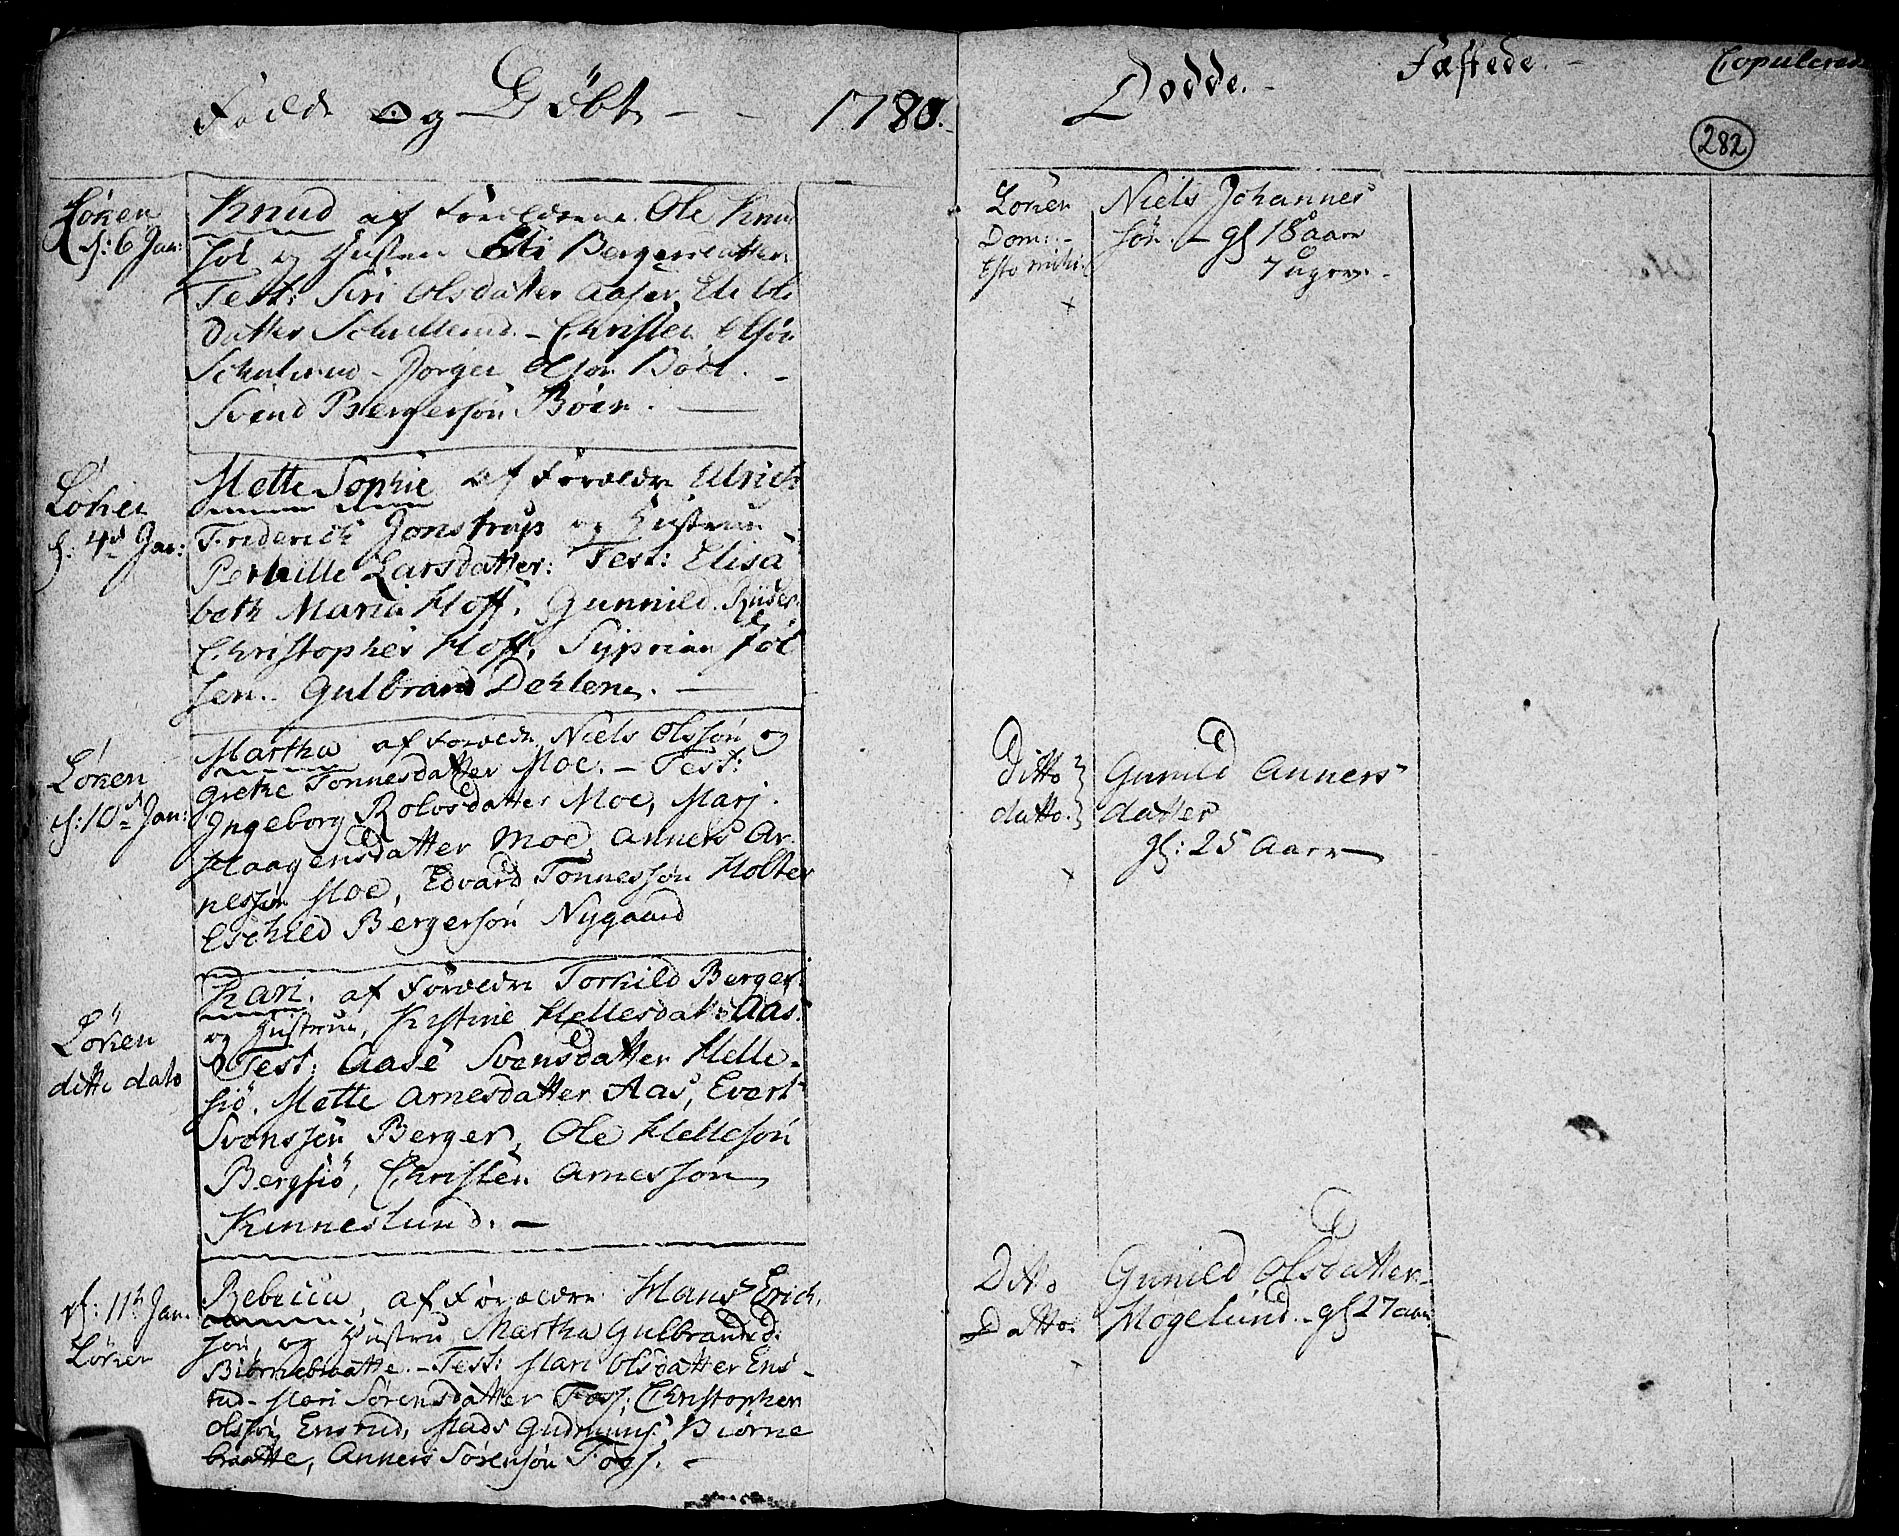 Födde Og Döbte - - 1780.
Löken
f: 6 Jan:
Knud af Forældrene Ole Knud
söl og Hustru Eli Bergersdatter
Test: Siri Olsdatter Aaser, Eli Ols
datter Schullerud. - Christen Olsön
Schulerud - Börger Olsön Böen. -
Svend Bergersön Böen. -
Löken
f: 4d Jan:
Mette Sophie af Forældre Ulrich
Friderich Jonstrup og Hustrue
Pernille Larsdatter: Test: Elisa
beth Maria Hoff, Gunnild
Christopher Hoff, Syprian Föl
sen. Gulbrand Dehlene. -
Löken
f: 10d Jan:
Martha af Forældre Niels Olssön og
Grethe Tonnesdatter Moe. - Test:
Ingeborg Rolvsdatter Moe, Marj.
Haagensdatter Moe, Anners Ar
nessön Moe, Edvard Tonnessön Holter
Eschild Bergersön Nygaard
Löken
ditto dato
Kari. af Forældre Torkild Berger
og Hustrue, Kistine Hellesdat: Aas:
Test: Aase Svensdatter Helle-
siö. Mette Arnesdatter Aas, Evert
Svenssön Berger, Ole Hellesön
Bergsiö, Christen Arnessön
Kinneslund. -
f: 11te Jan.
Löken
Rebecca, af Forældre Hans Erich
sön og Hustru Martha Gulbrandsd:
Biörnebraatte. - Test: Mari Olsdatter Ens-
rud - Mari Sörensdatter Foss, Christopher
Olssön Ensrud, Mads Gudmuns: Biörne
braatte, Anners Sörensön Foss. -
Dödde. -
Fæstede. -
Copulerede
282
Löken
Dom: -
Esto mihi
Niels Johannes
sön. - gl 18 aar
7 uger. -
Ditto
datto.
Gunild Anners
datter
gl: 25 Aar
Ditto
Datto.
Gunild Olsdatter
Mogelund. - gl 27 aar